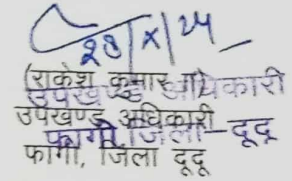 28/X/24
(राकेश कुमार
उपखण्ड अधिकारी
उपखण्ड अधिकारी
फागी, जिला-दूदू
फागी, जिला दूदू